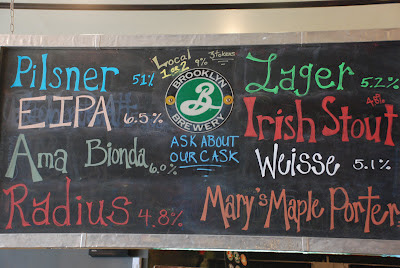 Local 1 or 2 9%
Stickers
Pilsner 5.1%
EIPA 6.5%
Ama Bionda 6.0%
Radius 4.8%
BROOKLYN
B
BREWERY
ASK ABOUT
OUR CASK
Lager 5.2%
Irish Stout
Weisse 5.1%
Mary's Maple Porter